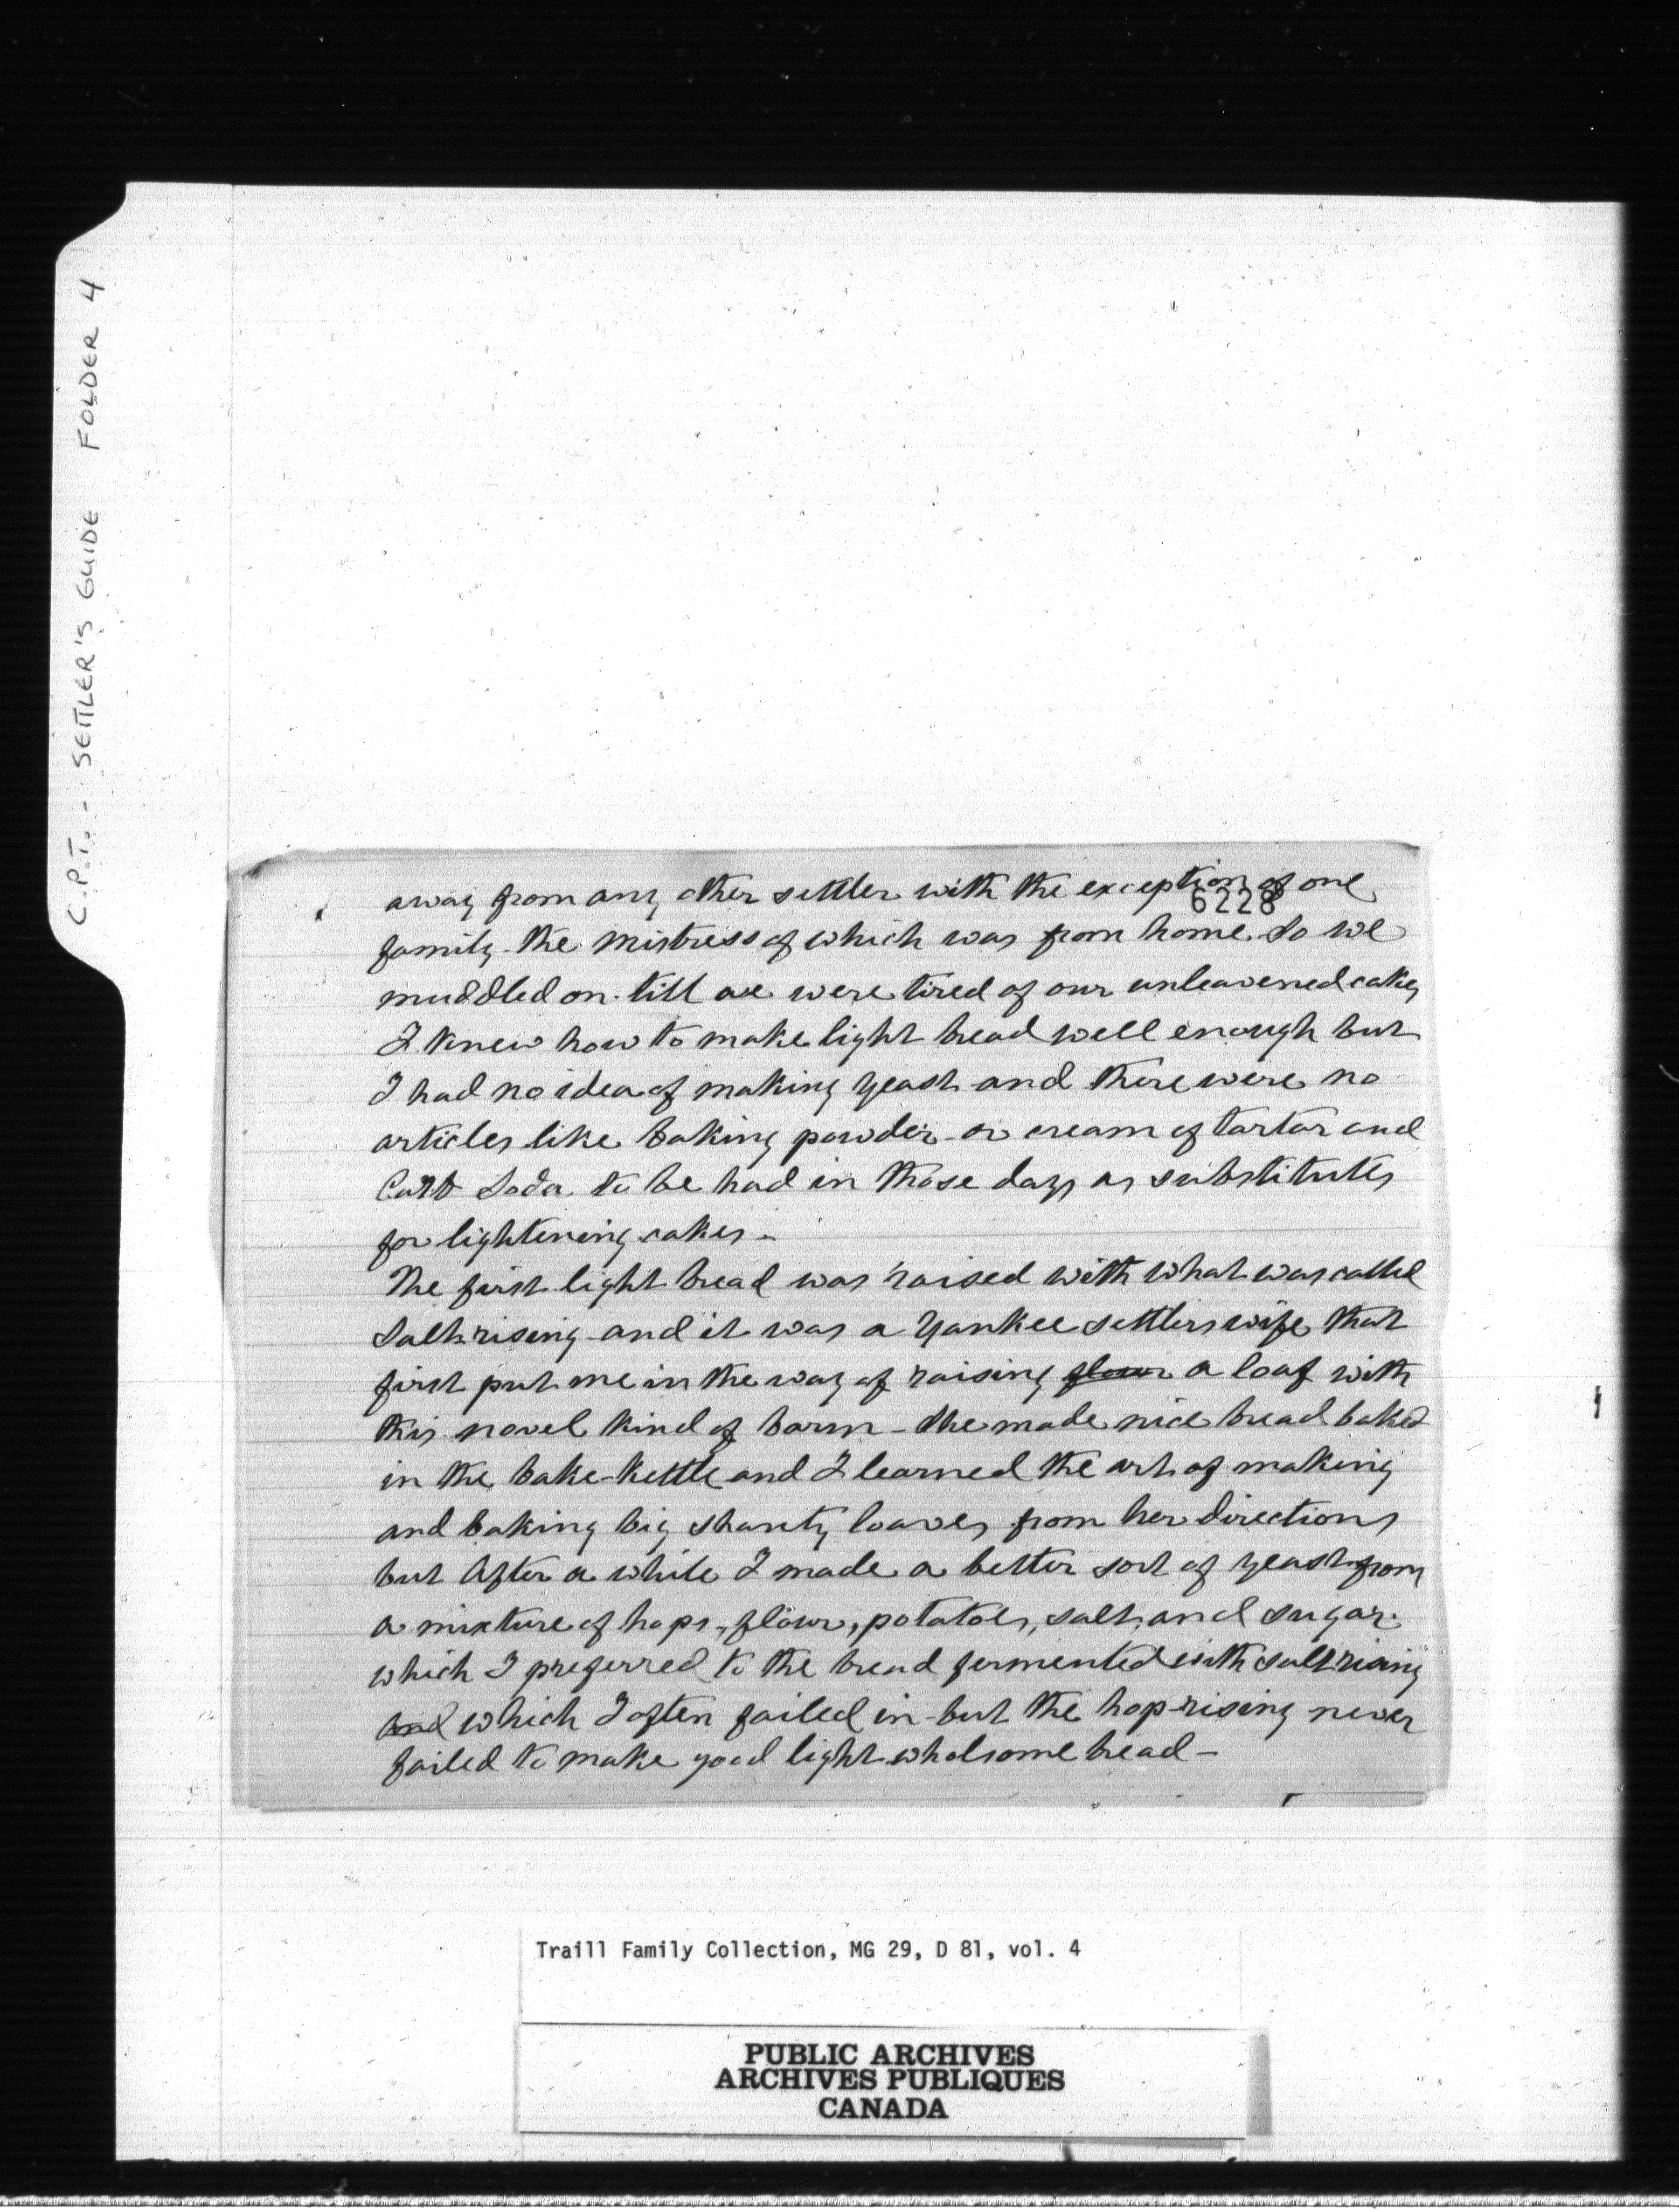 C.P.T. - SETTLER'S GUIDE FOLDER 4
away from any other settler with the exception of one
6228
family the mistress of which was from home So we
muddled on till we were tired of our unleavened cakes
I knew how to make light bread well enough but
I had no idea of making yeast and there were no
articles like baking powder or cream of tartar and
Carb Soda to be had in those days as substitutes
for lightening cakes -
The first light bread was raised with what was called
Salt rising and it was a Yankee settlers wife that
first put me in the way of raising flour a loaf with
this novel kind of barm - She made nice bread baked
in the bake-kettle and I learned the art of making
and baking big shanty loaves from her directions
but After a while I made a better sort of yeast from
a mixture of hops, flour, potatoes, salt, and sugar
which I preferred to the bread fermented with salt rising
and which I often failed in - but the hop-rising never
failed to make good light wholsome bread -
Traill Family Collection, MG 29, D 81, vol. 4
PUBLIC ARCHIVES
ARCHIVES PUBLIQUES
CANADA